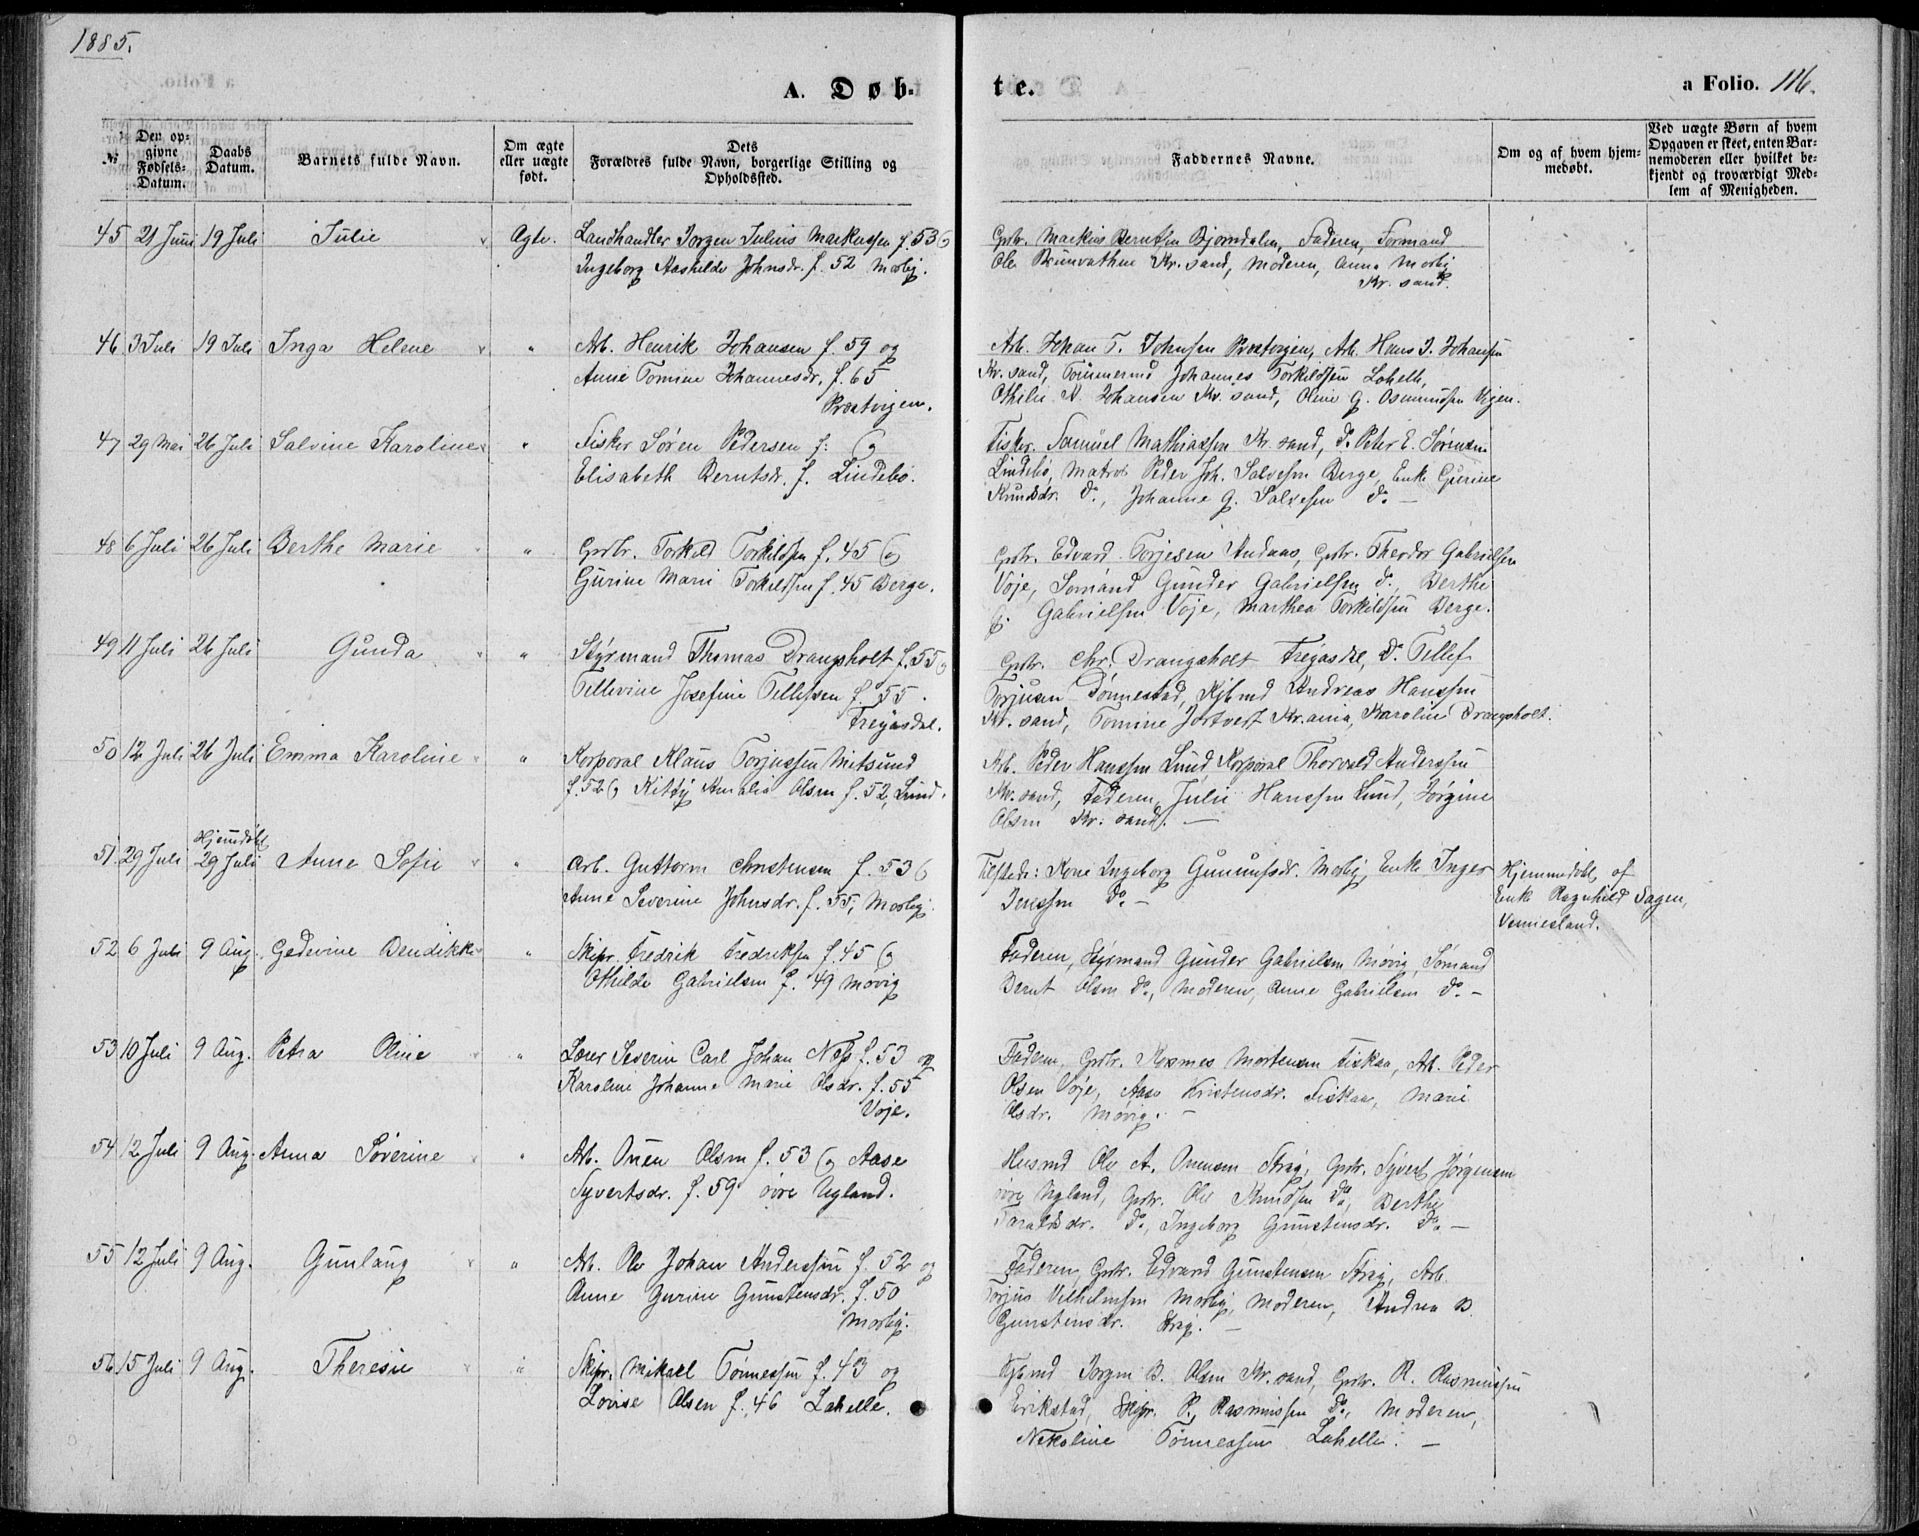 1885.
A. Døb-
te.
a Folio. 116.
№
Den op-
givne
Fødsels-
Datum.
Daabs
Datum.
Barnets fulde Navn.
Om ægte
eller uægte
født.
Dets
Forældres fulde Navn, borgerlige Stilling og
Opholdssted.
Faddernes Navne.
Om og af hvem hjem-
medøbt.
Ved uægte Børn af hvem
Opgaven er skeet, enten Bar-
nemoderen eller hvilket be-
kjendt og troværdigt Med-
lem af Menigheden.
45 21 Juni 19 Juli Julie Ægte. Landhandler Jørgen Julius Markussen f. 53 og
Ingeborg Aashilde Johnsdr. f. 52 Mosby.
Gbr. Markus Berntsen Bjorndalen, Faderen, Formand
Ole Kr.sand, Moderen, Anna Mosby
Kr.sand.
46 3 Juli 19 Juli Inga Helene " Arb. Henrik Johansen f. 59 og
Anne Tomine Johannesdr. f. 65
Prostvigen.
Arb. Johan T. Johnsen Prostvigen, Arb. Hans J. Johansen
Kr.sand, Tømmermd Johannes Torkildsen Lahelle,
Othelie A. Johansen Kr.sand, Oline G. Osmundsen Vigen.
47 29 Mai 26 Juli Salvine Karoline " Fisker Søren Pedersen f: og
Elisabeth Berntsdr. f. Lindebø.
Fisker Samuel Mathiassen Kr.sand, Do Peter E. Sørensen
Lindebø, Matros Peder Joh. Salvesen Berge, Enke Gurine
Knudsdr. Do, Johanne G. Salvesen Do —
48 6 Juli 26 Juli Berthe Marie " Gbr. Torkild Torkildsen f. 45 og
Gurine Marie Torkildsen f. 45 Berge.
Gbr. Edvard Torjesen Andaas, Gbr. Theodor Gabrielsen
Voje, Sømand Gunder Gabrielsen Do, Berthe
G. Gabrielsen Voje, Marthea Torkildsen Berge.
49 11 Juli 26 Juli Gunda " Styrmand Thomas Drangsholt f. 55 og
Tellevine Josefine Tellefsen f. 55.
Frejasdal.
Gbr. Chr. Drangsholt Frejasdal, Do Tellef
Torjusen Dønnestad, Kjbmd Andreas Hanssen
Kr.sand, Tomine Jortveit Kr.ania, Karoline Drangsholt.
50 12 Juli 26 Juli Emma Karoline " Korporal Klaus Torjussen Mitsund
f. 52 og Kitty Amalia Olsen f. 52, Lund.
Arb. Peder Hanssen Lund, Korporal Thorvald Anderssen
Kr.sand, Faderen, Julie Hanssen Lund, Jørgine
Olsen Kr.sand. —
51 29 Juli Hjemdøbt
29 Juli Anne Sofie " Arb. Guttorm Christensen f. 53 og
Anne Severine Johnsdr. f. 55, Mosby.
Tilstede: Kone Ingeborg Gunulfsdr. Mosby, Enke Inger
Jenssen Do —
Hjemmedøbt af
Enke Ragnhild Sagen,
Vennesland.
52 6 Juli 9 Aug. Gedevine Bendikke " Skipr. Fredrik Fredriksen f. 45 og
Othilde Gabrielsen f. 49 Møvig
Faderen, Styrmand Gunder Gabrielsen Møvig, Sømand
Bernt Olsen Do, Moderen, Anne Gabrielsen Do —
53 10 Juli 9 Aug. Petra Oline " Lærer Severin Carl Johan Næss f. 53 og
Karoline Johanne Marie Olsdr. f. 55
Voje.
Faderen, Gbr. Rasmus Mortensen Fiskaa, Arb. Peder
Olsen Voje, Aase Kristensdr. Fiskaa, Marie
Olsdr. Møvig. —
54 12 Juli 9 Aug. Anna Søverine " Arb. Onen Olsen f. 53 og Aase
Syvertsdr. f. 59 øvre Usland.
Husmd Ole A. Onensen Strai, Gbr. Syvert Jørgensen
øvre Usland, Gbr. Ole Knudsen Do, Berthe
Taraldsdr. Do, Ingeborg Gunstensdr. Do —
55 12 Juli 9 Aug. Gunlaug " Arb. Ole Johan Anderssen f. 52 og
Anne Gurine Gunstensdr. f. 50
Mosby.
Faderen, Gbr. Edvard Gunstensen Strai, Arb.
Torjus Vilhelmsen Mosby, Moderen, Andrea B.
Gunstensdr. Strai. —
56 15 Juli 9 Aug. Theresie " Skipr. Mikael Tønnessen f. 43 og
Lovise Olsen f. 46 Lahelle.
Kjbmd Jørgen B. Olsen Kr.sand, Gbr. R. Rasmussen
Erikstad, Skipr. P. Rasmussen Do, Moderen,
Nikoline Tønnessen Lahelle. —